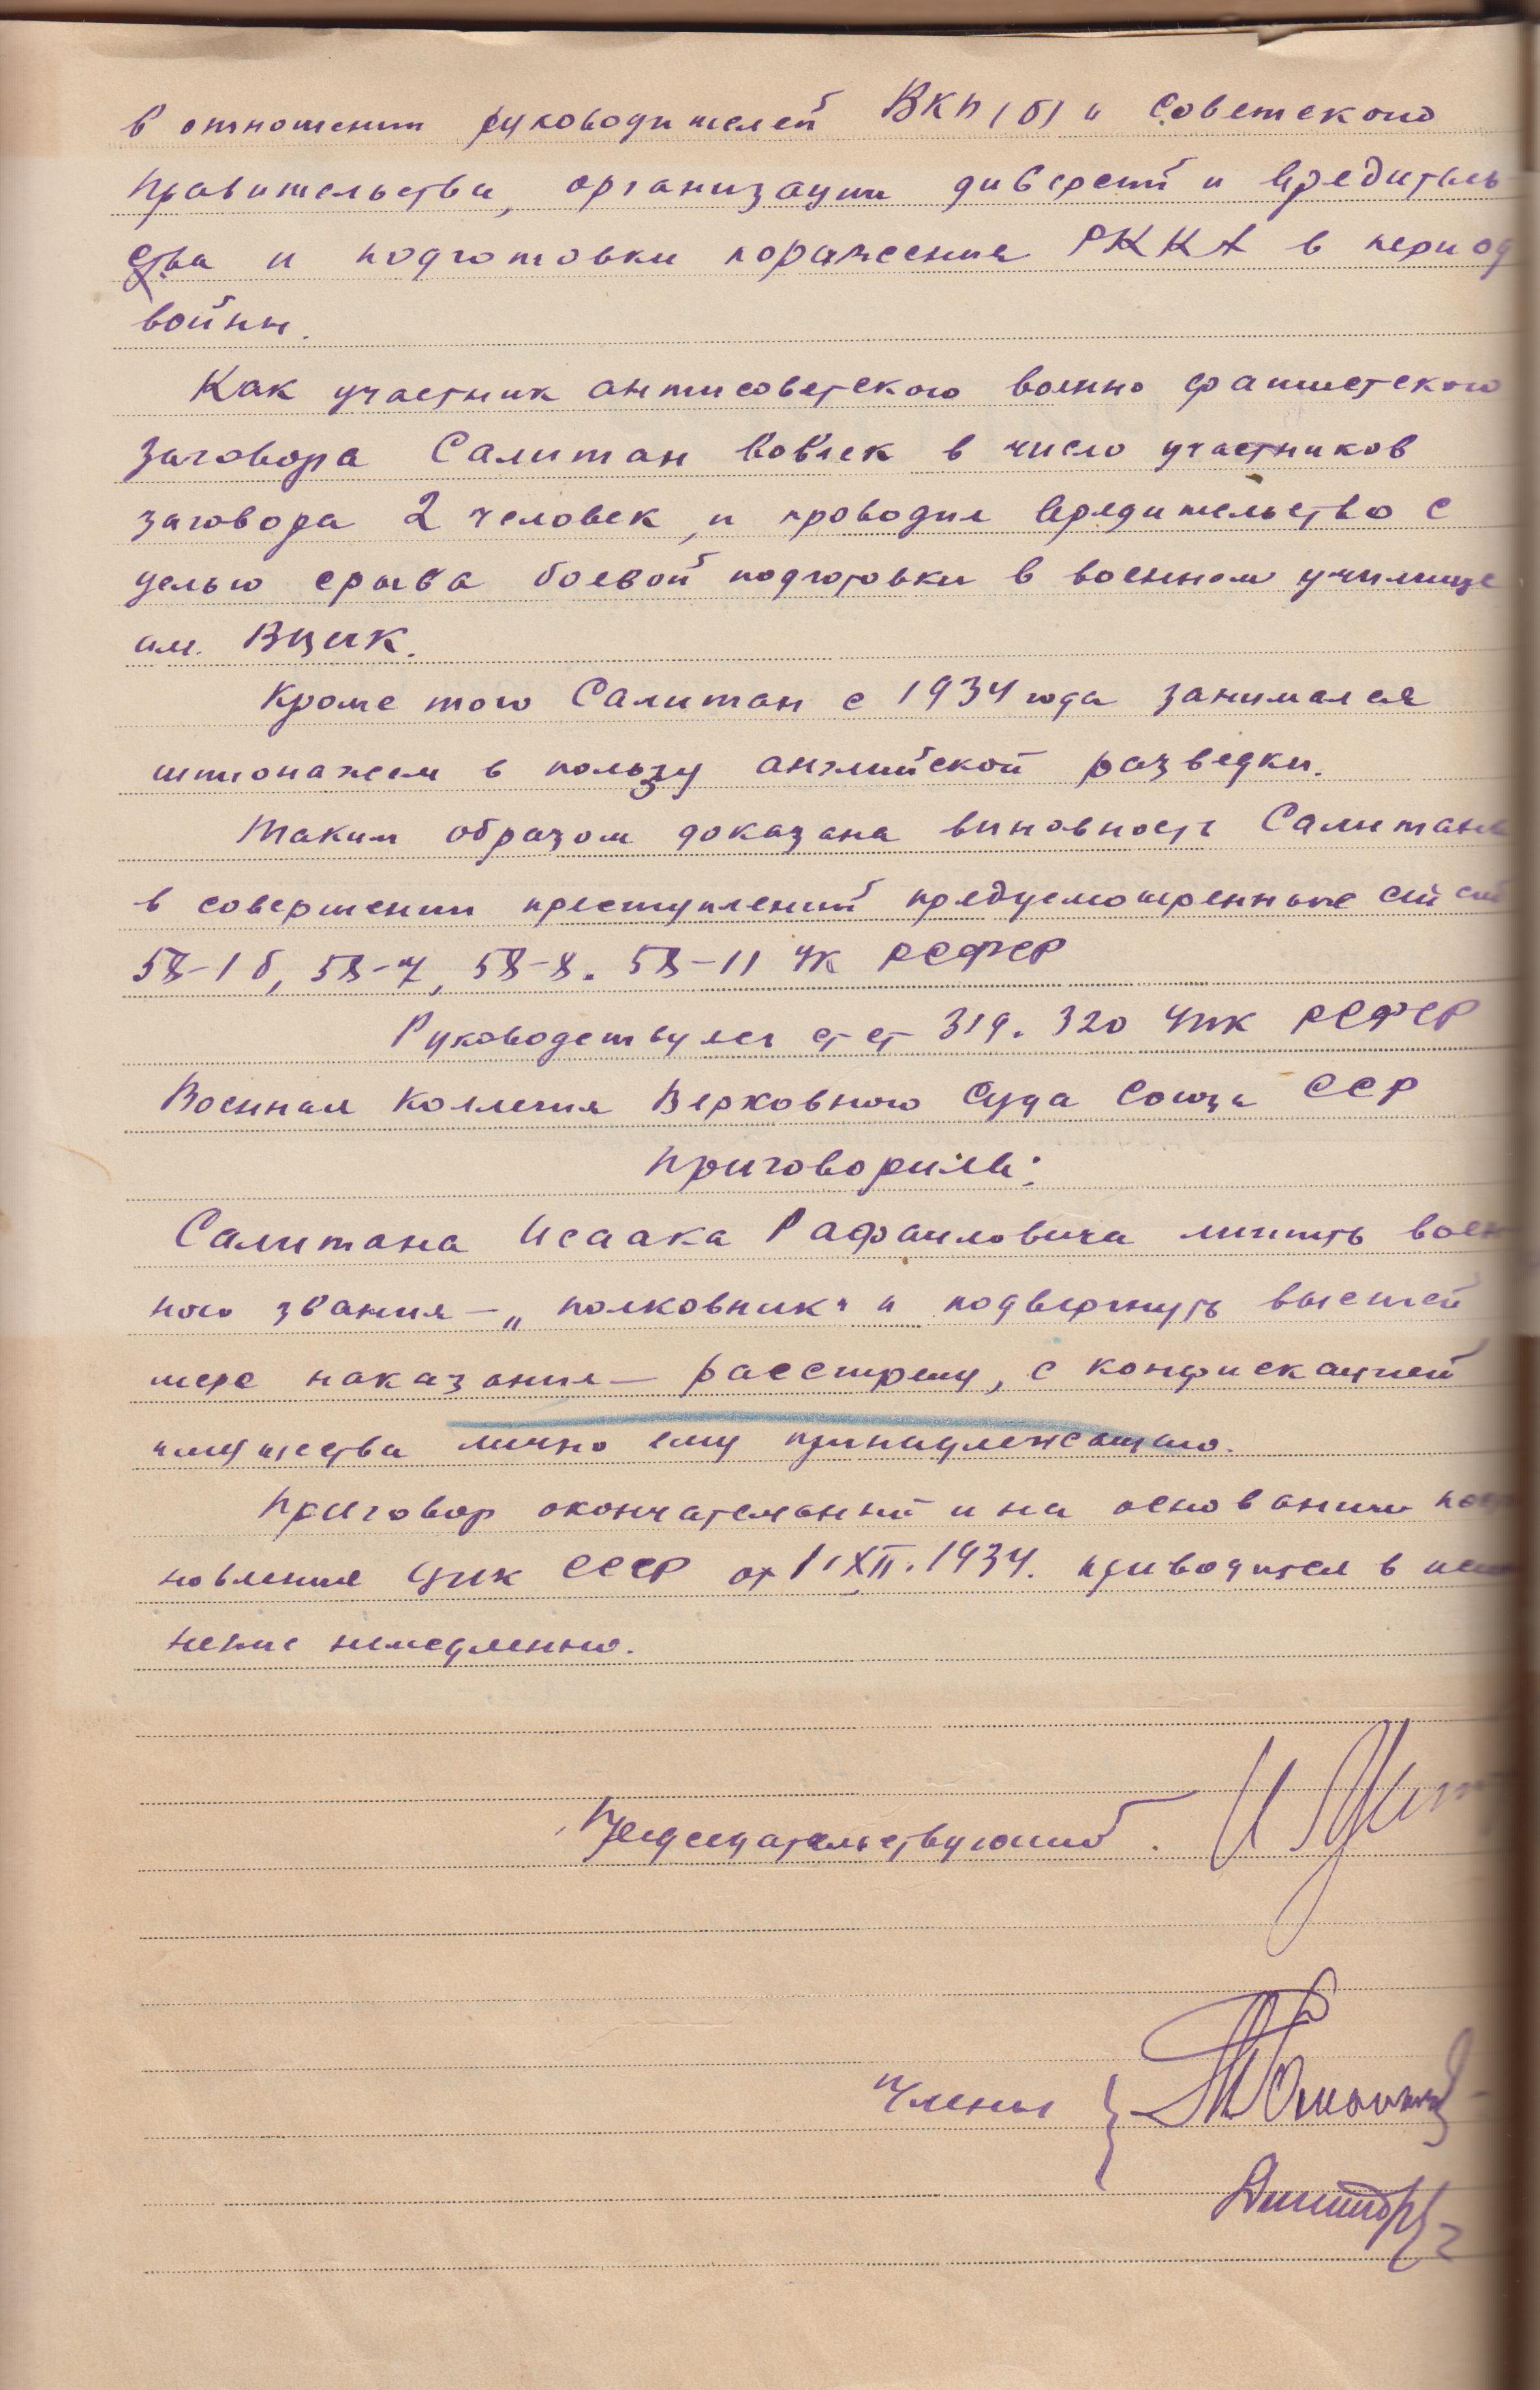 в отношении руководителей ВКП(б) и Советского
правительства, организации диверсий и вредитель
ства и подготовки поражения РККА в период
войны.
Как участник антисоветского военно фашистского
заговора Салитан вовлек в число участников
заговора 2 человек, и проводил вредительство с
целью срыва боевой подготовки в военном училище
им. ВЦИК.
Кроме того Салитан с 1934 года занимался
шпионажем в пользу английской разведки.
Таким образом доказана виновность Салитана
в совершении преступлений предусмотренных ст
58-1б, 58-7, 58-8. 58-11 УК РСФСР
Руководствуясь ст ст 319. 320 УПК РСФСР
Военная Коллегия Верховного Суда Союза ССР
приговорила:
Салитана Исаака Рафаиловича лишить воен
ного звания – „полковник" и подвергнуть высшей
мере наказания – расстрелу, с конфискацией
имущества лично ему принадлежащего.
Приговор окончательный и на основании
новления ЦИК СССР от 1/XII.1934. приводится в
нение немедленно.
Председательствующий.
Члены